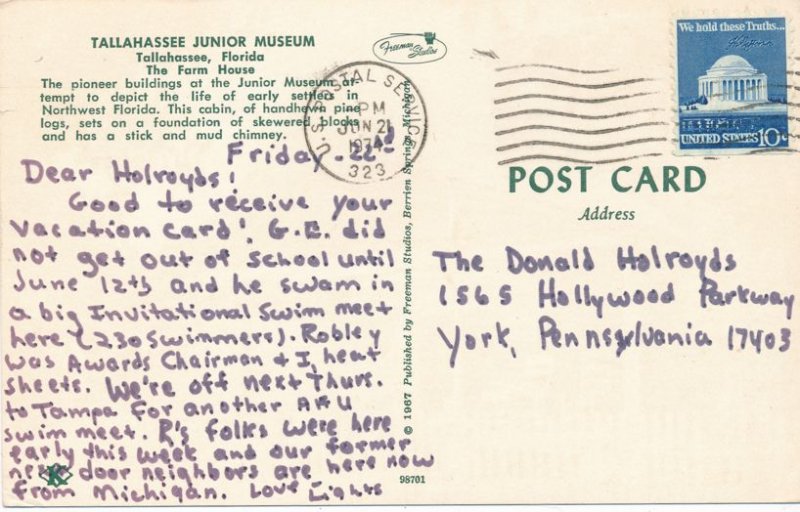 TALLAHASSEE JUNIOR MUSEUM
Tallahassee, Florida
The Farm House
The pioneer buildings at the Junior Museum at-
tempt to depict the life of early settlers in
Northwest Florida. This cabin, of handhewn pine
logs, sets on a foundation of skewered blocks
and has a stick and mud chimney.
Freeman Studios
U.S. POSTAL SERVICE
PM
JUN 21
1974
323
We hold these Truths...
UNITED STATES 10c
POST CARD
Address
Friday - 22nd
Dear Holroyds!
Good to receive your
vacation card! G.E. did
not get out of school until
June 12th and he swam in
a big Invitational Swim meet
here (230 swimmers). Robley
was Awards Chairman & I, heat
sheets. We're off next Thurs.
to Tampa for another AAU
swim meet. R's folks were here
early this week and our former
next door neighbors are here now
from Michigan. Love Lights
The Donald Holroyds
1565 Hollywood Parkway
York, Pennsylvania 17403
© 1967 Published by Freeman Studios, Berrien Springs, Michigan
K
98701